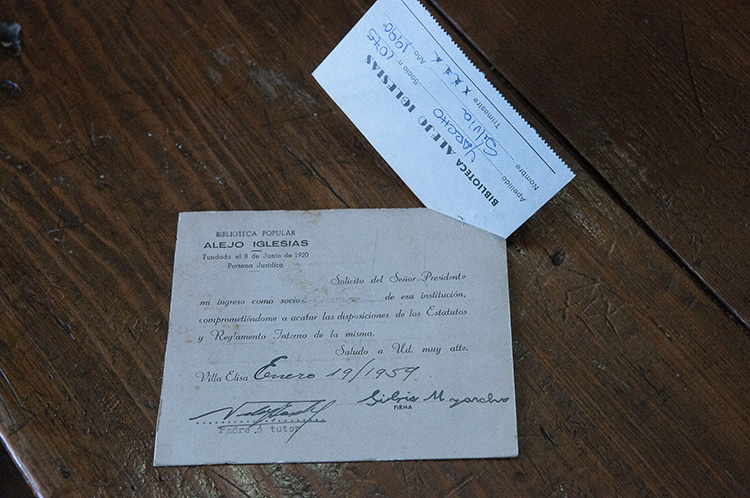 BIBLIOTECA POPULAR
ALEJO IGLESIAS
Fundada el 8 de Junio de 1920
Persona Jurídica
Solicito del Señor Presidente
mi ingreso como socio de esa institución,
comprometiéndome a acatar las disposiciones de los Estatutos
y Reglamento Interno de la misma.
Saludo a Ud. muy atte.
Villa Elisa Enero 19/1959.
Silvia M Yarcho
FIRMA
Padre ó tutor
BIBLIOTECA ALEJO IGLESIAS
Apellido YARCHO Socio n. 1075
Nombre Silvia
Trimestre Año 1990